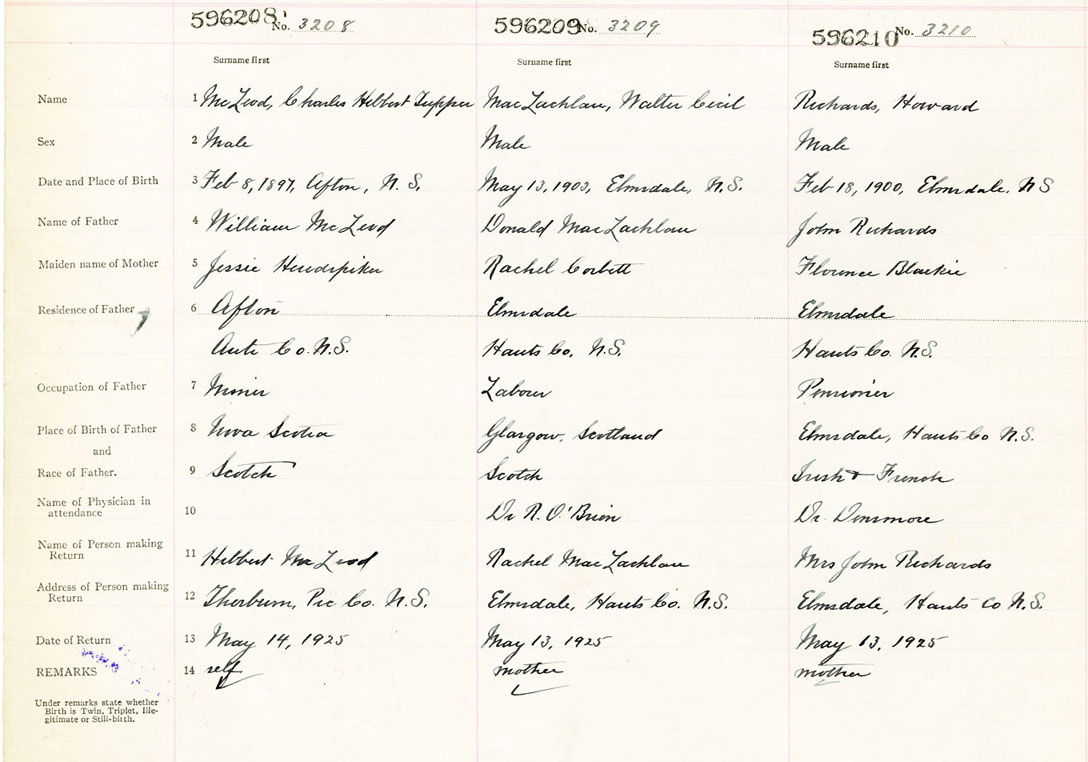 596208 No. 3208 596209 No. 3209 596210 No. 3210
Surname first Surname first Surname first
Name 1 McLeod, Charles Hibbert Tupper MacLachlan, Walter Cecil Richards, Howard
Sex 2 Male Male Male
Date and Place of Birth 3 Feb 8, 1897, Afton, N.S. May 13, 1903, Elmsdale, N.S. Feb 18, 1900, Elmsdale, N S
Name of Father 4 William McLeod Donald MacLachlan John Richards
Maiden name of Mother 5 Jessie Rachel Corbett Florence Blackie
Residence of Father 6 Afton Elmsdale Elmsdale
Anti Co. N.S. Hants Co, N.S. Hants Co. N.S.
Occupation of Father 7 Miner Labour Pensioner
Place of Birth of Father 8 Nova Scotia Glasgow, Scotland Elmsdale, Hants Co N.S.
and
Race of Father. 9 Scotch Scotch Irish & French
Name of Physician in
attendance 10 Dr R. O'Brien Dr. Densmore
Name of Person making
Return 11 Hibbert McLeod Rachel MacLachlan Mrs John Richards
Address of Person making
Return 12 Thorburn, Pic Co. N.S. Elmsdale, Hants Co. N.S. Elmsdale, Hants Co N.S.
Date of Return 13 May 14, 1925 May 13, 1925 May 13, 1925
REMARKS 14 self mother mother
Under remarks state whether
Birth is Twin, Triplet, Ille-
gitimate or Still-birth.